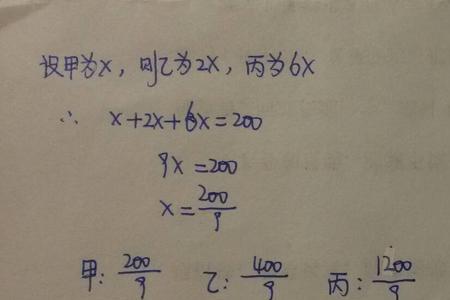 设甲为x，则乙为2x，丙为6x
∴ x+2x+6x=200
9x=200
x=200/9
甲：200/9 乙：400/9 丙：1200/9